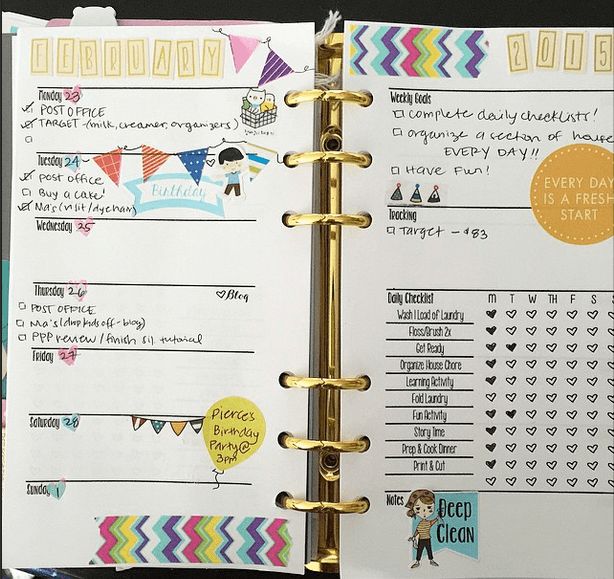 FEBRUARY
Monday 23
POST OFFICE
TARGET - (milk, creamer, organizers)
Tuesday 24
Post office
Buy a cake!
Ma's (visit/dye hair)
Birthday
Wednesday 25
Thursday 26
Blog
POST OFFICE
Ma's (drop kids off - blog)
PPP review / finish sil. tutorial
Friday 27
Saturday 28
Pierce's
Birthday
Party @
3pm
Sunday 1
2015
Weekly Goals
complete daily checklists!
organize a section of house
EVERY DAY!!
Have Fun!
EVERY DAY
IS A FRESH
START
Tracking
Target - $83
Daily Checklist M T W TH F S S
Wash 1 Load of Laundry
Floss/Brush 2x
Get Ready
Organize House Chore
Learning Activity
Fold Laundry
Fun Activity
Story Time
Prep & Cook Dinner
Print & Cut
Notes
Deep
Clean